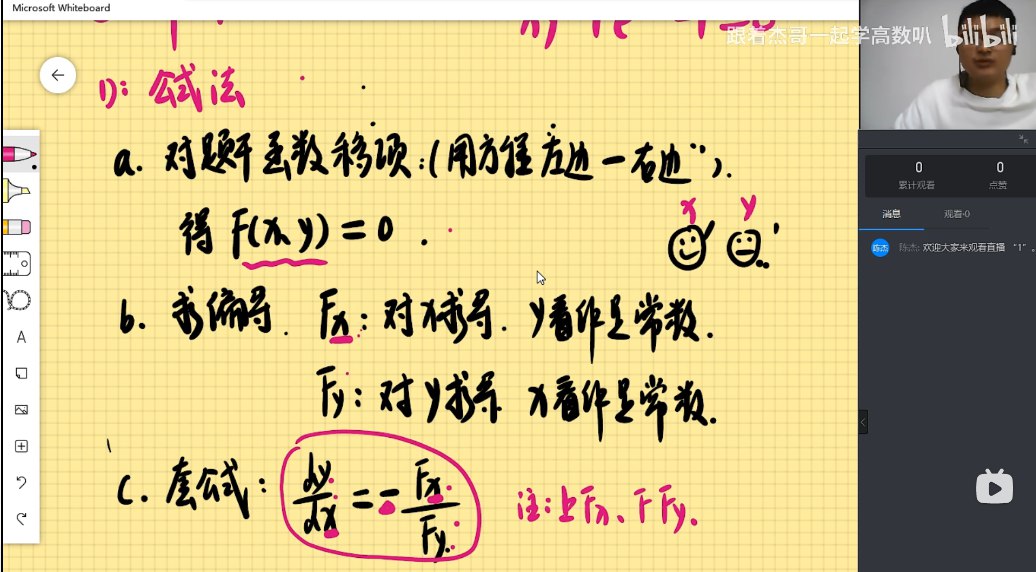 Microsoft Whiteboard
跟着杰哥一起学高数叭 bilibili
1): 公式法
a. 对题干函数移项:(用方程左边一右边").
得 F(x,y)=0.
x y
b. 求偏导. Fx: 对x求导. y看作是常数.
Fy: 对y求导 x看作是常数.
c. 套公式: dy/dx = -Fx/Fy
注:上Fx、下Fy.
0 0
累计观看 点赞
消息 观看·0
陈杰 陈杰: 欢迎大家来观看直播 “1”。
A